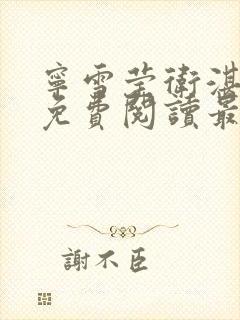 寧雪瑩衛湛
免費閱讀最
謝不臣